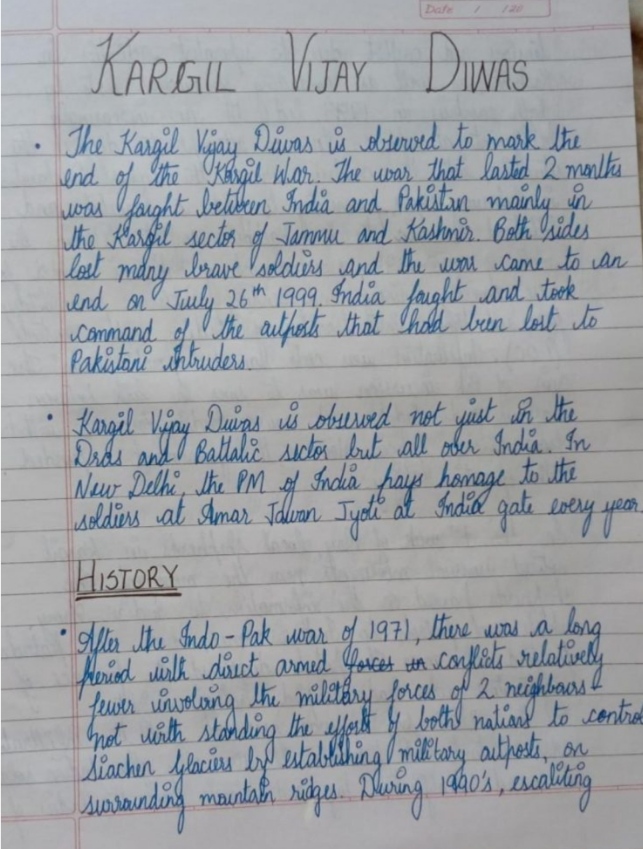 Date / /20
KARGIL VIJAY DIWAS
• The Kargil Vijay Diwas is observed to mark the
end of the Kargil War. The war that lasted 2 months
was faught between India and Pakistan mainly in
the Kargil sector of Jammu and Kashmir. Both sides
lost many brave soldiers and the war came to an
end on Juuly 26th 1999. India faught and took
command of the autposts that had been lost to
Pakistani intruders.
• Kargil Vijay Duwas is observed not just in the
Dras and Battalic sector but all over India. In
New Delhi, the PM of India pays homage to the
soldiers at Amar Jawan Jyoti at India gate every year.
HISTORY
• After the Indo-Pak war of 1971, there was a long
period with direct armed forces in conflicts relatively
fewer involving the military forces of 2 neighbours-
not with standing the efforts of both nations to control
Siachen Glaciers by establishing military autposts, on
surrounding mountain ridges. During 1990's, escaliting